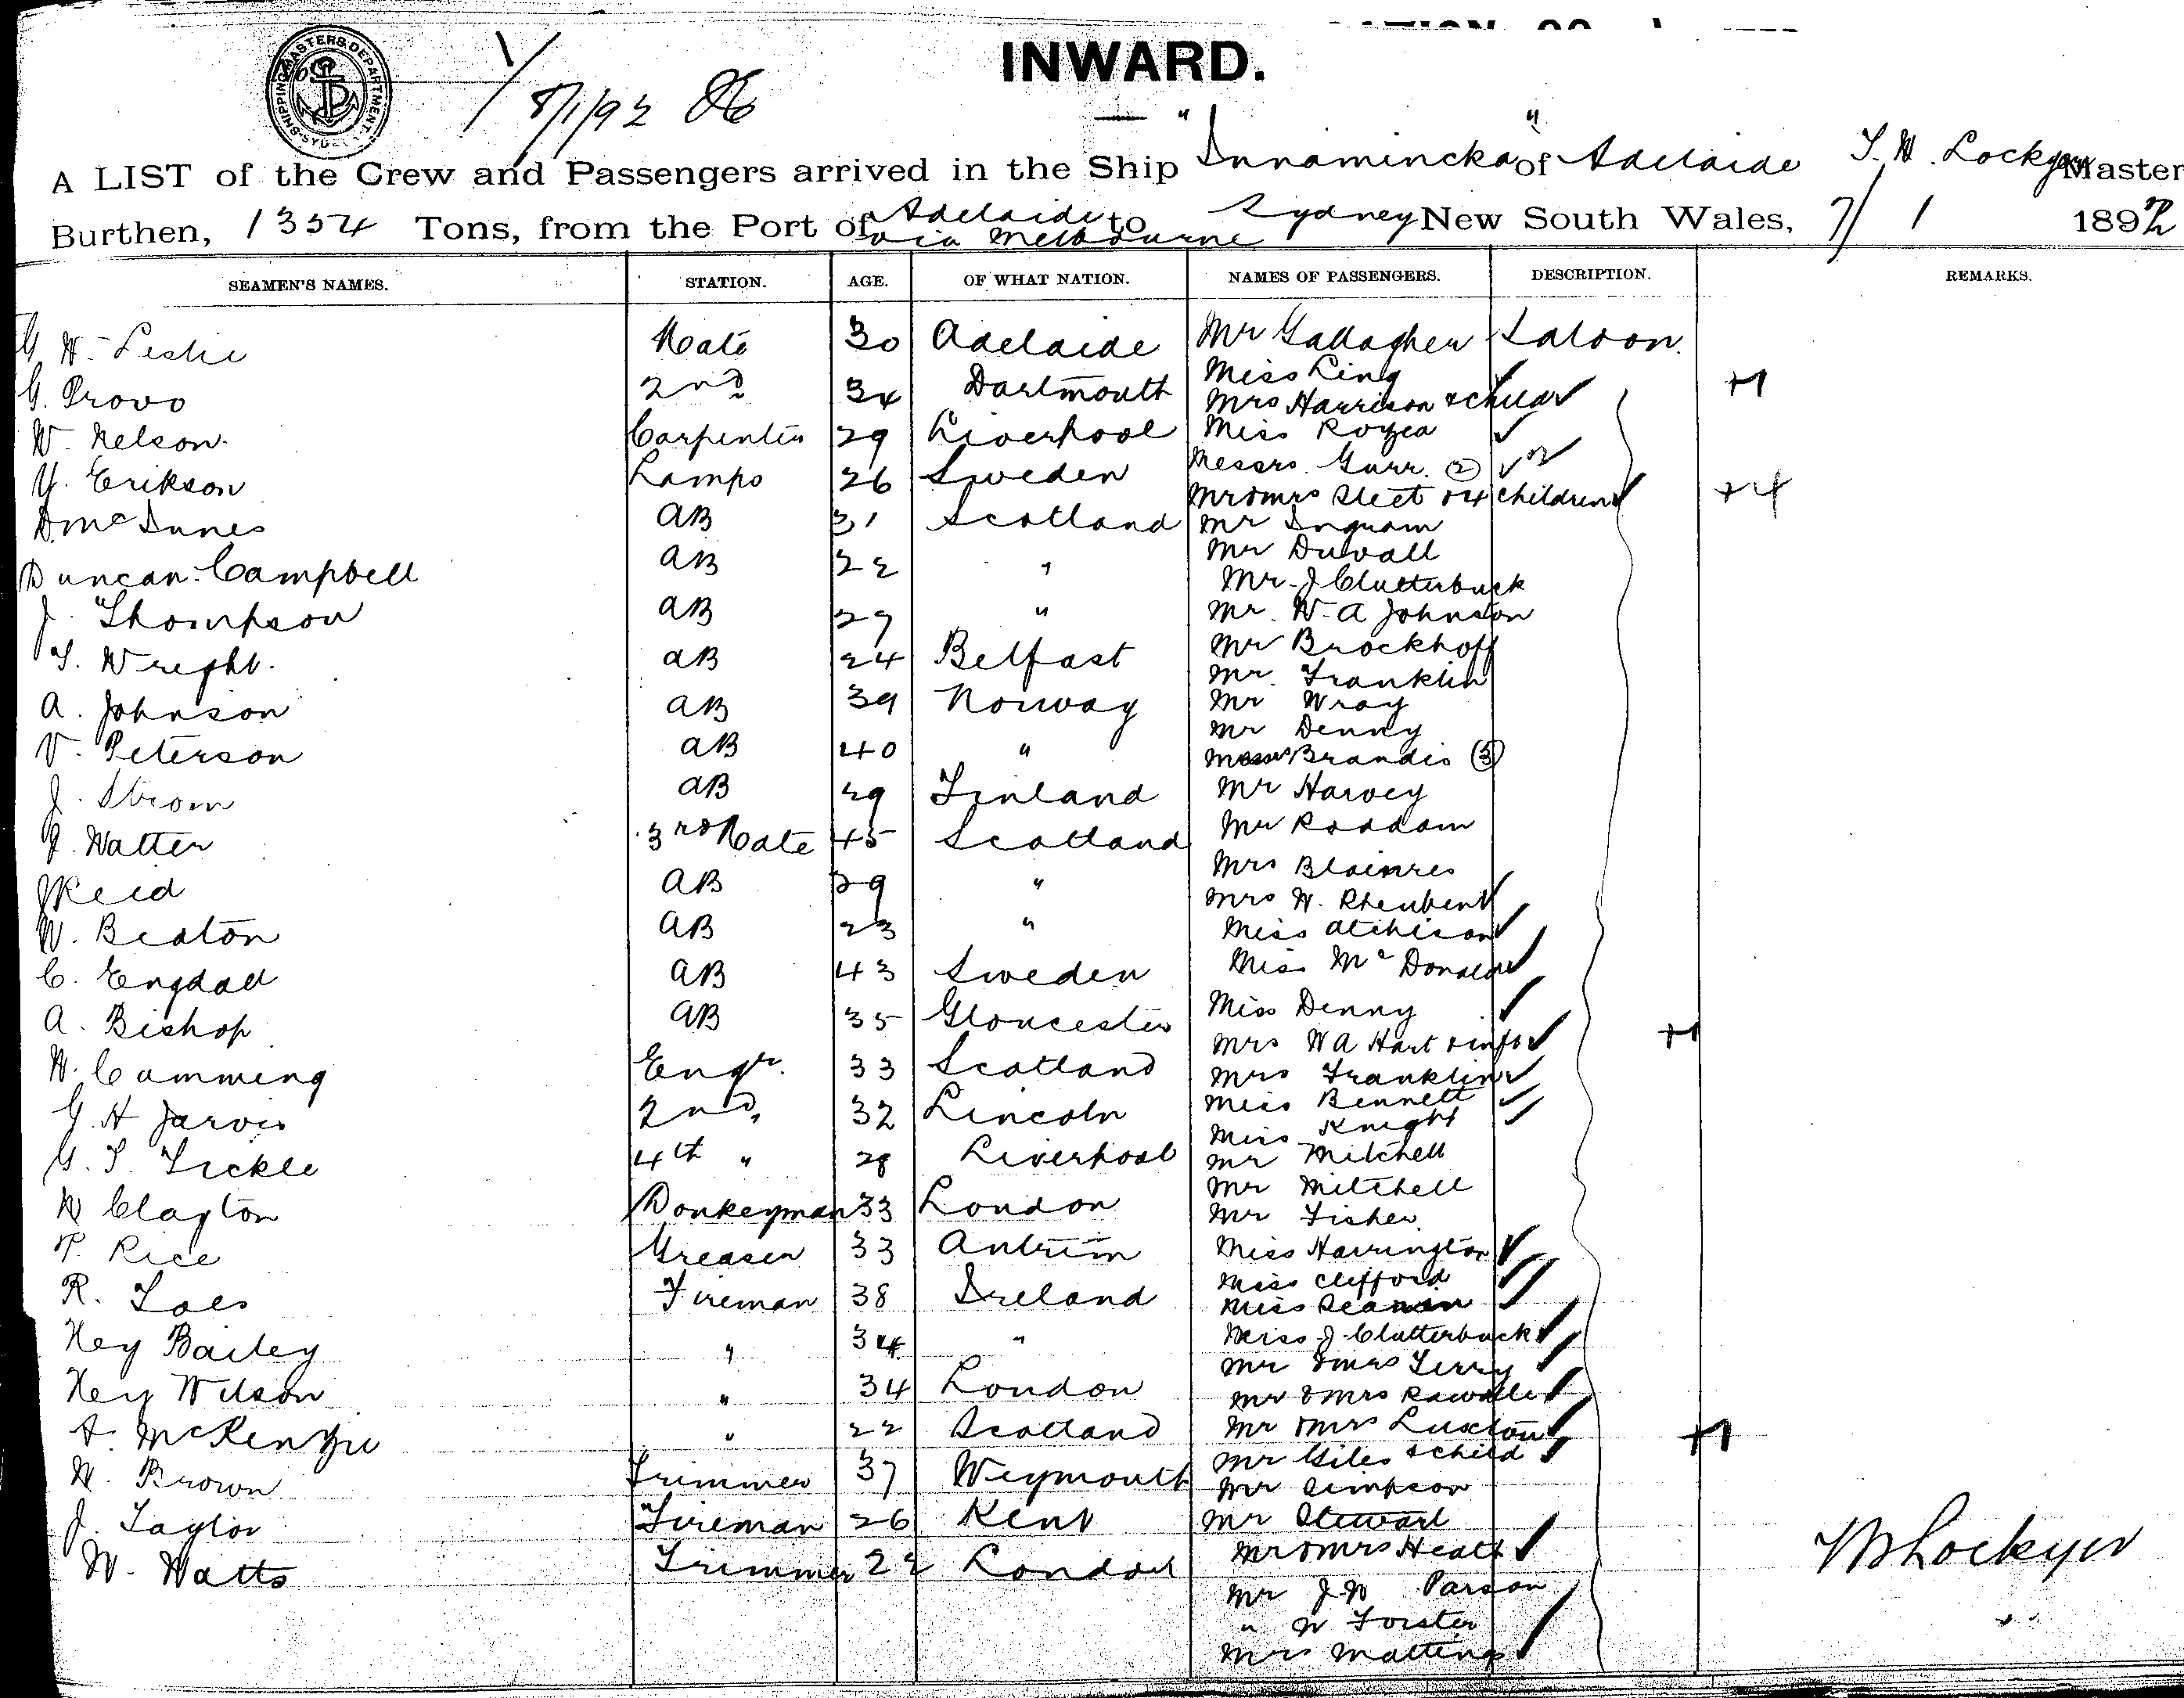 INWARD.
SHIPPING MASTERS DEPARTMENT SYDNEY
8/1/92
A LIST of the Crew and Passengers arrived in the Ship "Innamincka" of Adelaide T. W. Lockyer Master
Burthen, 1354 Tons, from the Port of Adelaide via Melbourne to Sydney New South Wales, 7/1 1892
SEAMEN'S NAMES. STATION. AGE. OF WHAT NATION. NAMES OF PASSENGERS. DESCRIPTION. REMARKS.
G. W. Leslie Mate 30 Adelaide
G. Provo 2nd 34 Dartmouth
W. Nelson Carpenter 29 Liverpool
Y. Erikson Lamps 26 Sweden
D. McInnes AB 31 Scotland
Duncan Campbell AB 22 "
J. Thompson AB 27 "
T. Wright. AB 24 Belfast
A. Johnson AB 39 Norway
V. Peterson AB 40 "
J. Strom AB 29 Finland
J. Watter 3rd Mate 45 Scotland
J Reid AB 29 "
W. Beaton AB 23 "
C. Engdall AB 43 Sweden
A. Bishop AB 35 Gloucester
W. Cumming Engr. 33 Scotland
G. H Jarvis 2nd 32 Lincoln
G. T. Tickle 4th " 28 Liverpool
W Clayton Donkeyman 33 London
P. Rice Greaser 33 Antrim
R. Fireman 38 Ireland
Hey Bailey " 34 "
Hey Wilson " 34 London
A. McKenzie " 22 Scotland
W. Brown Trimmer 37 Weymouth
J. Taylor Fireman 26 Kent
W. Watts Trimmer 22 London
Mr Gallagher Saloon.
Miss King
Mrs Harrison & child +1
Miss
Messrs. Gurr. (2) 2
Mr & Mrs Sleet & 4 children +4
Mr Ingram
Mr Duvall
Mr J Clutterbuck
Mr. W. A Johnston
Mr Brockhoff
Mr. Franklin
Mr Wray
Mr Denny
Brandis (3)
Mr Harvey
Mr Roddam
Mrs
Mrs W.
Miss Atchison
Miss McDonald
Miss Denny
Mrs W A Hart & inft +1
Mrs Franklin
Miss Bennett
Miss Knight
Mr Mitchell
Mr Mitchell
Mr Fisher
Miss Harrington
Miss Clifford
Miss
Miss J. Clutterbuck
Mr & Mrs Terry
Mr & Mrs
Mr & Mrs Luxton
Mr Giles & child +1
Mr Simpson
Mr Stewart
Mr & Mrs Heath
Mr J W Parson
" W Forster
Mrs Matting
T W Lockyer